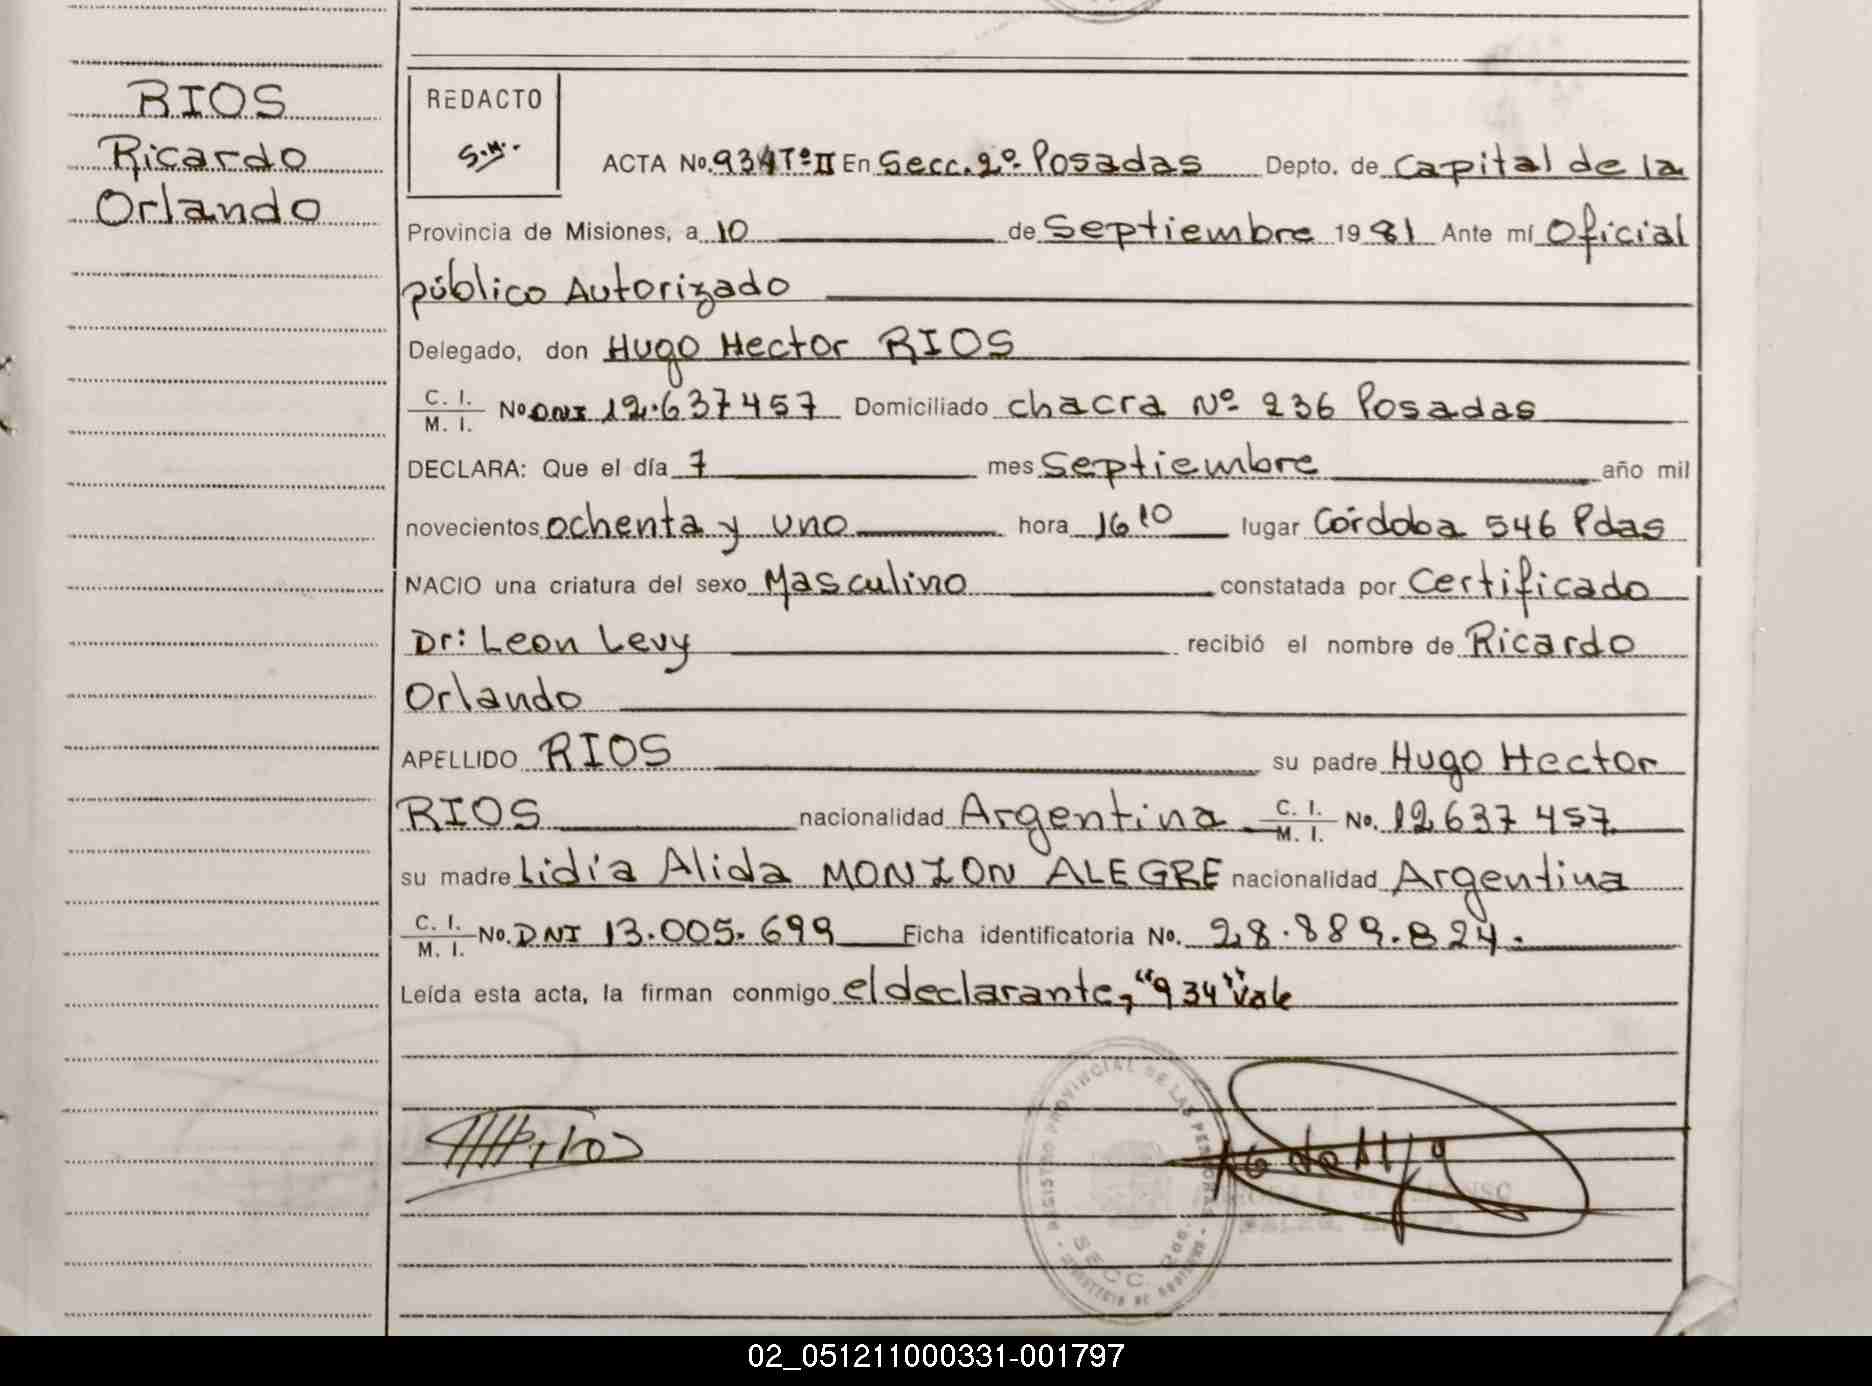 RIOS
Ricardo
Orlando
REDACTO
S.M.
ACTA No. 934 Tº II En Secc. 2º Posadas Depto. de Capital de la
Provincia de Misiones, a 10 de Septiembre 1981 Ante mí Oficial
público Autorizado
Delegado, don Hugo Hector RIOS
C. I.
M. I. No DNI 12.637457 Domiciliado chacra Nº 236 Posadas
DECLARA: Que el día 7 mes Septiembre año mil
novecientos ochenta y uno hora 16 10 lugar Córdoba 546 Pdas
NACIO una criatura del sexo Masculino constatada por Certificado
Dr: Leon Levy recibió el nombre de Ricardo
Orlando
APELLIDO RIOS su padre Hugo Hector
RIOS nacionalidad Argentina C. I. M. I. No. 12637457
su madre Lidia Alida MONZON ALEGRE nacionalidad Argentina
C. I. M. I. No. DNI 13.005.699 Ficha identificatoria No. 28.889.824.
Leída esta acta, la firman conmigo el declarante, "934" Vale
REGISTRO PROVINCIAL DE LAS PERSONAS
SECC. 2da.
02_051211000331-001797